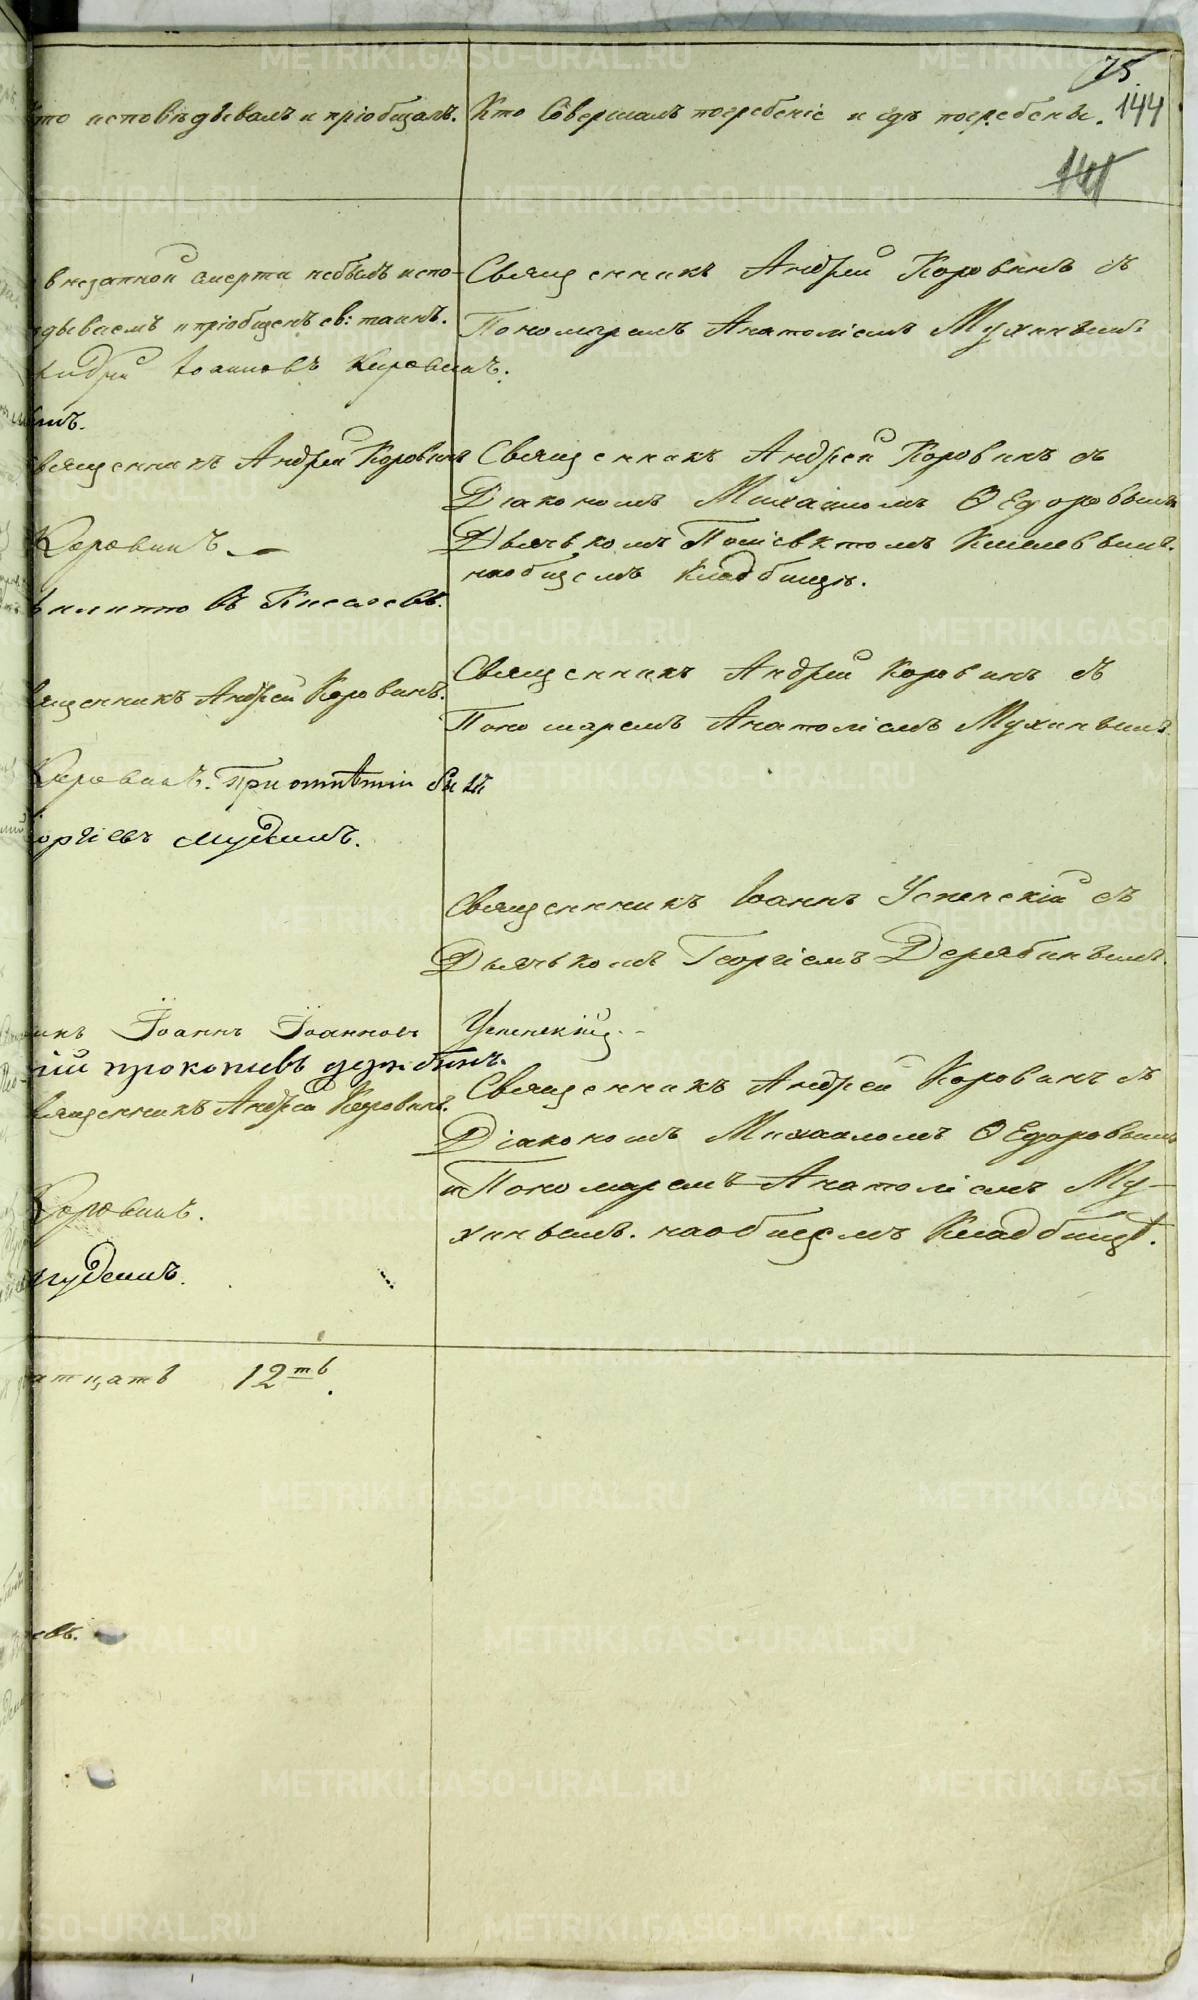 75.
то исповѣдывалъ и пріобщалъ.
Кто Совершалъ погребеніе и гдѣ погребены.
144
141
внезапной смерти небылъ испо-
дываемъ и пріобщенъ св: таинъ.
Андрей Іоанновъ Коровинъ.
Священникъ Андрей Коровинъ съ
Пономаремъ Анатоліемъ Мухинымъ
вященникъ Андрей Коровинъ
Коровинъ.
Священникъ Андрей Коровинъ съ
Діакономъ Михаиломъ Ѳедоровымъ
Дьячькомъ Поліевктомъ
наобщемъ кладбищѣ.
ященникъ Андрей Коровинъ.
Коровинъ. При отпѣтіи былъ
оргіевъ
Священникъ Андрей Коровинъ съ
Пономаремъ Анатоліемъ Мухинымъ
Священникъ Іоаннъ Успенскій съ
Дьячькомъ Георгіемъ Дерябинымъ.
икъ Іоаннъ Іоанновъ Успенскій.
гій прокопьевъ дерябинъ.
вященникъ Андрей Коровинъ.
Коровинъ.
Священникъ Андрей Коровинъ съ
Діакономъ Михаиломъ Ѳедоровымъ
и Пономаремъ Анатоліемъ Му-
хинымъ. наобщемъ Кладбищѣ.
атцать 12ть.
евъ.
METRIKI.GASO-URAL.RU